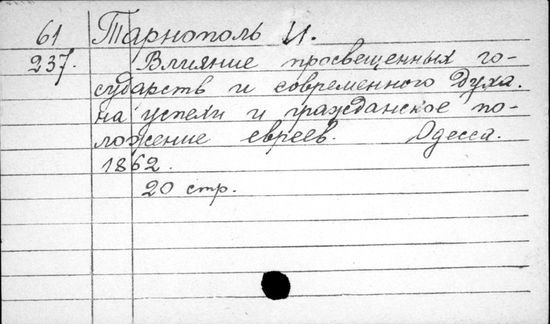 61 Тарнополь И.
237. Влияние просвещенных го-
сударств и современного духа.
на успехи и гражданское по-
ложение евреев. Одесса.
1862.
20 стр.